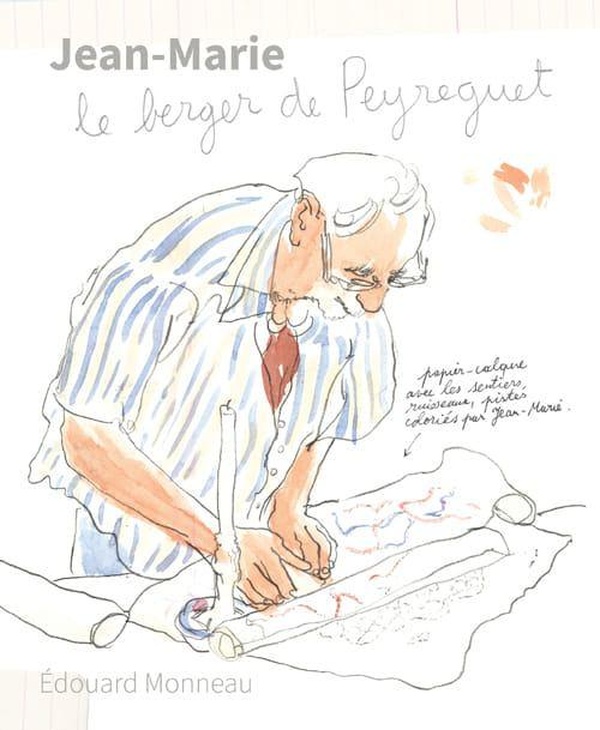 Jean-Marie
le berger de Peyreguet
papier-calque
avec les sentiers,
ruisseaux, pistes
coloriés par Jean-Marie.
Édouard Monneau